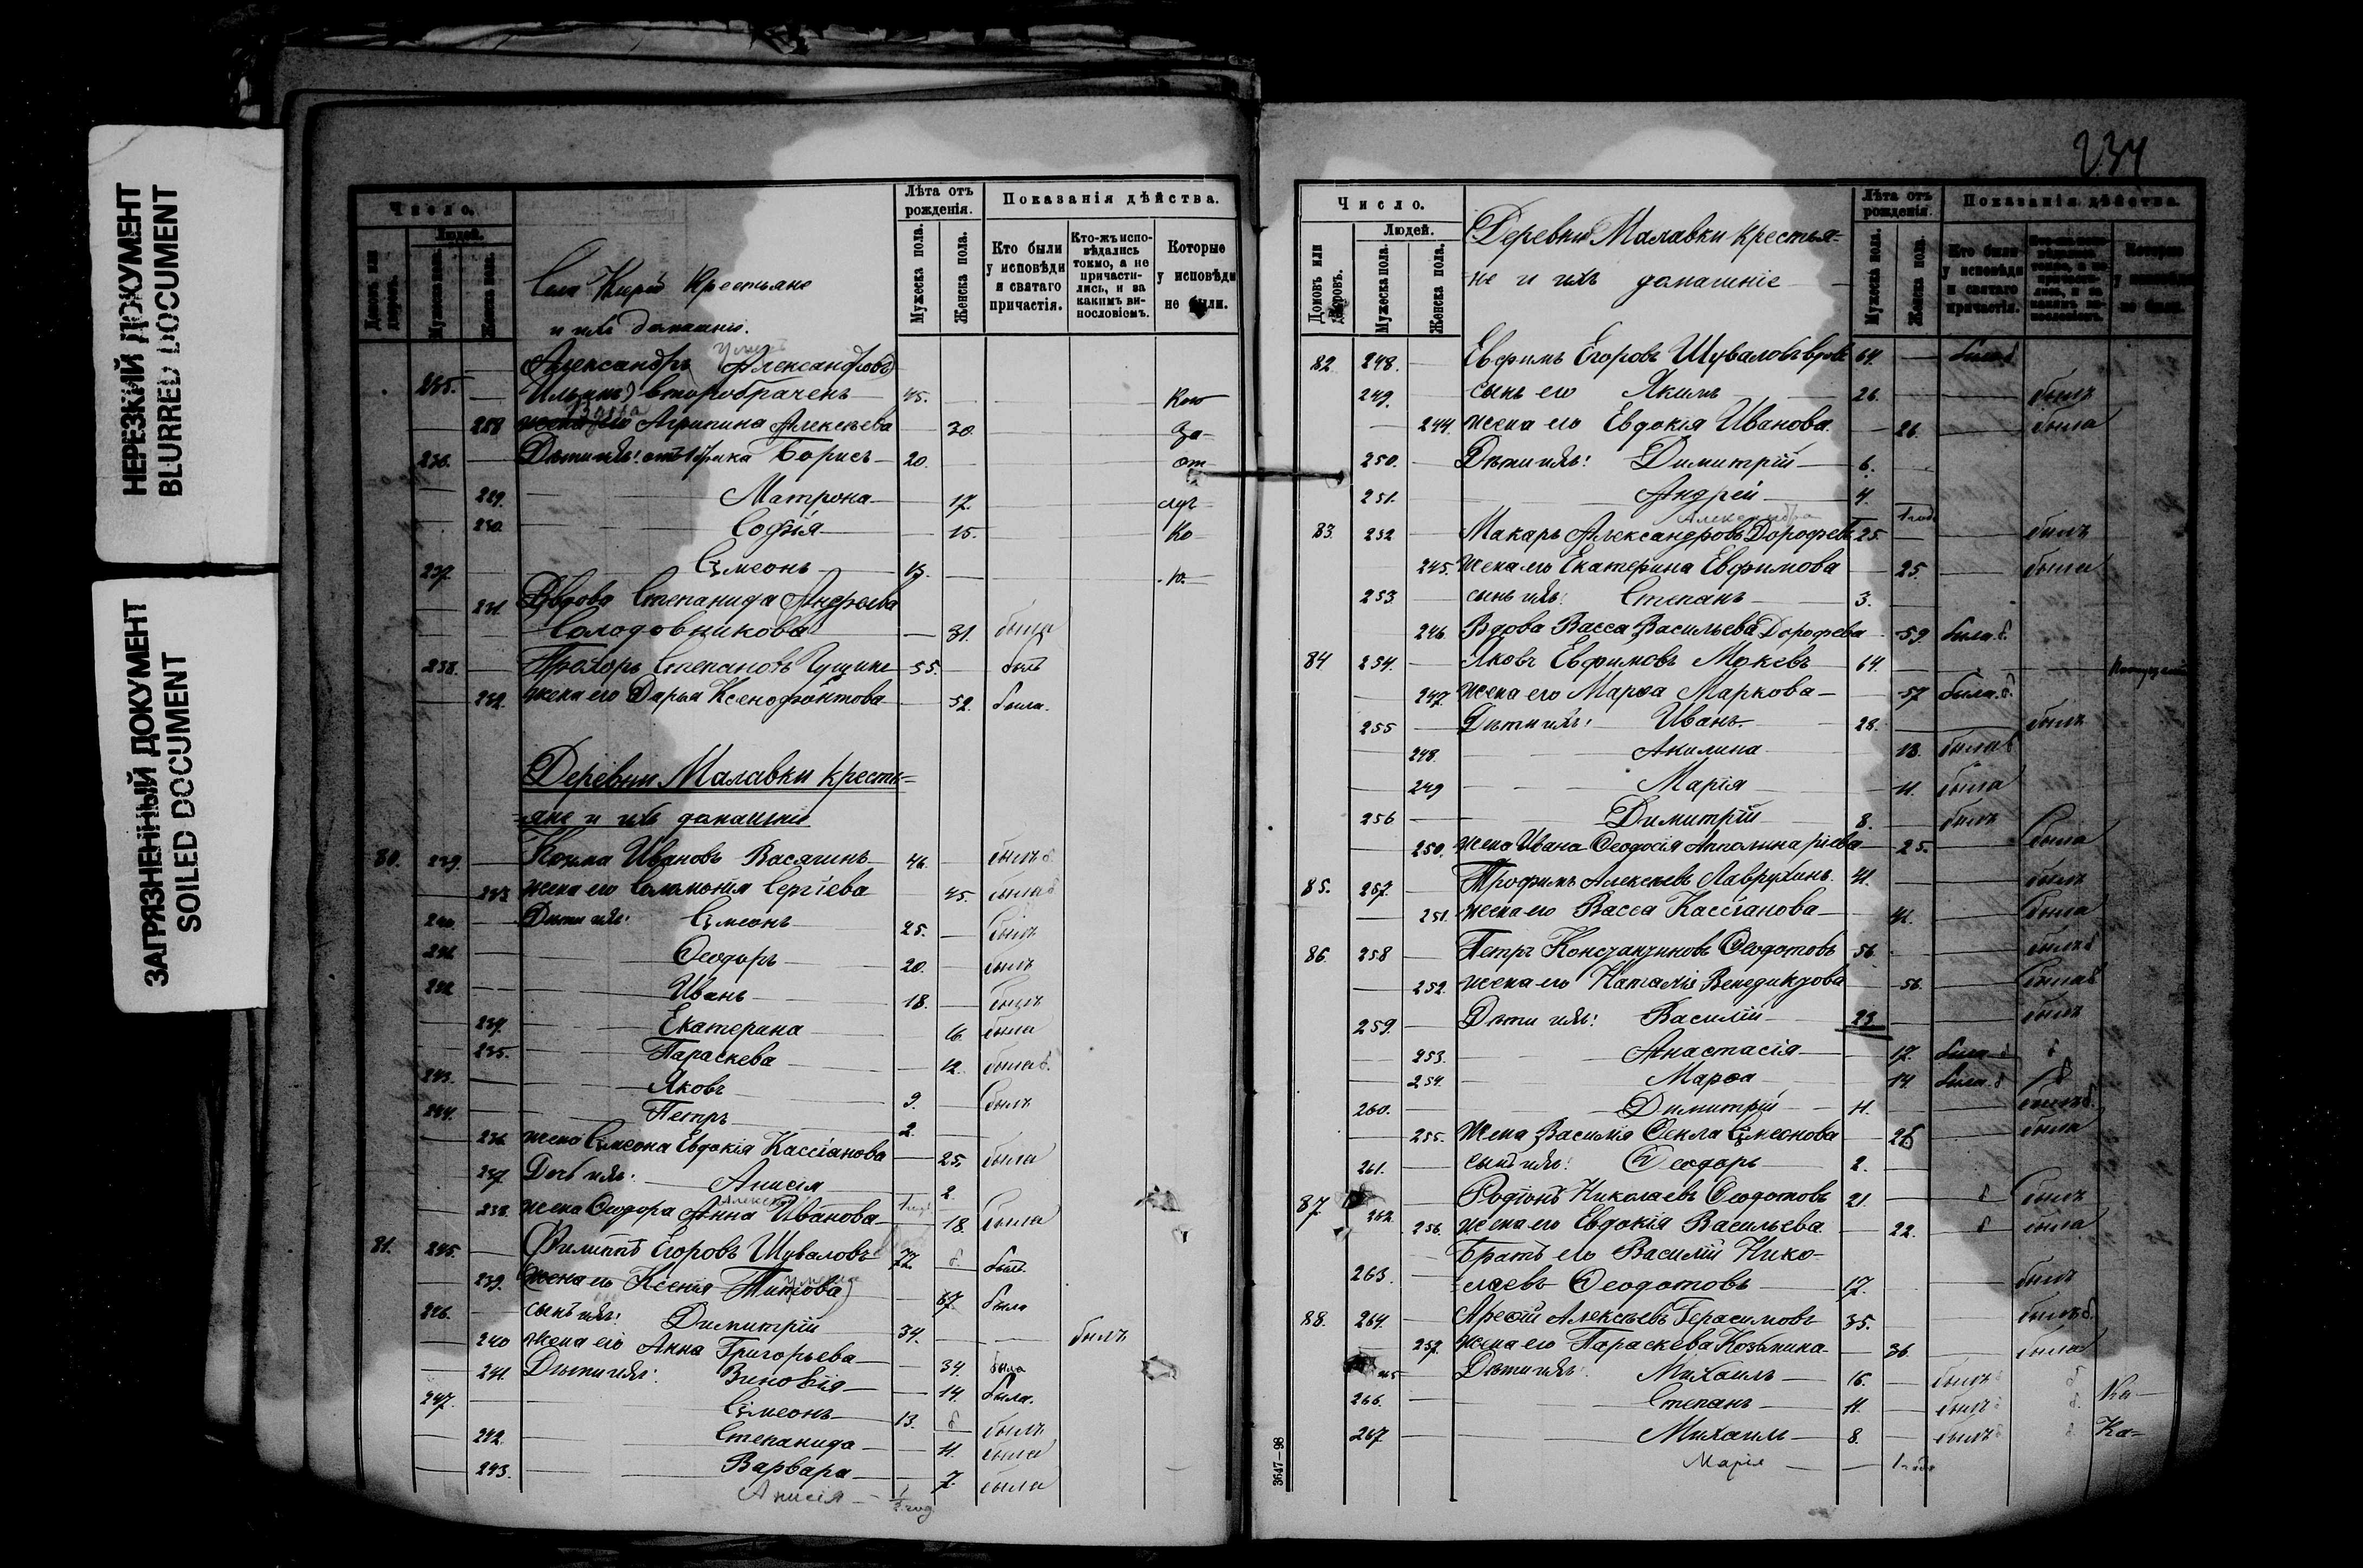 НЕРЕЗКИЙ ДОКУМЕНТ
BLURRED DOCUMENT
ЗАГРЯЗНЕННЫЙ ДОКУМЕНТ
SOILED DOCUMENT
Число.
Людей.
Лѣта отъ рожденія.
Показанія дѣйства.
Мужеска пола.
Женска пола.
Кто были у исповѣди и святаго причастія.
Кто-жъ исповѣдались токмо, а не причастились, и за какимъ винословіемъ.
Которые у исповѣди не были.
Села крестьяне
и ихъ домашніе.
Александръ Александровъ
235. Ильинъ) второбраченъ 45.
Вдова
228 жена его Агрипина Алексѣева 30.
236. Дѣти ихъ: отъ 1 брака Борисъ 20.
229. Матрона 17.
230. Софія 15.
237. Сѵмеонъ 13.
231. Вдова Степанида Андреева
Солодовникова 31. была
238. Прохоръ Степановъ 55. былъ
232. жена его Дарья Ксенофонтова 52. была.
Деревни Малавки кресть=
=яне и ихъ домашніе
80. 239. Косма Ивановъ Васягинъ 46. былъ б
233. жена его Саломонія Сергіева 45. была б
240. Дѣти ихъ: Сѵмеонъ 25. былъ
241. Ѳеодоръ 20. былъ
242. Иванъ 18. былъ
234. Екатерина 16. была
235. Параскева 12. была б.
243. Яковъ 9. былъ
244. Петръ 2.
236. жена Сѵмеона Евдокія Кассіанова 25. была
237. Дочь ихъ: Анисія 2.
238. жена Ѳеодора Анна Иванова 18. была
81. 245. Филиппъ Егоровъ Шуваловъ 72. б былъ.
умерла
239. (жена его Ксенія Титова) 67. была
246. сынъ ихъ: Димитрій 34. былъ
240 жена его Анна Григорьева 34. была
241. Дѣти ихъ: Зиновія 14. была.
247. Сѵмеонъ 13. б былъ
242. Степанида 11. была
243. Варвара 7. была
Анисія
234
Число.
Людей.
Домовъ или дворовъ.
Мужеска пола.
Женска пола.
Лѣта отъ рожденія.
Показанія дѣйства.
Деревни Малавки крестья=
=не и ихъ домашніе
82 248. Евфимъ Егоровъ Шуваловъ вдовъ 64. былъ б
249. сынъ его Якимъ 26. былъ
244. жена его Евдокія Иванова. 26. была
250. Дѣти ихъ: Димитрій 6.
251. Андрей 4.
Александра 1 годъ
83. 252 Макаръ Александровъ Дорофеевъ 25. былъ
245. жена его Екатерина Евфимова 25. была
253. сынъ ихъ: Степанъ 3.
246. Вдова Васса Васильева Дорофеева 59. была б.
84 254. Яковъ Евфимовъ Мокевъ 64.
247. жена его Марѳа Маркова 57 была б.
255 Дѣти ихъ: Иванъ 28. былъ
248. Акилина 13. была б
249 Марія 11. была
256 Димитрій 8. былъ
250. жена Ивана Ѳеодосія Апполинаріева 25. была
85. 257. Трофимъ Алексѣевъ Лаврухинъ 41. былъ
251. жена его Васса Кассіанова 41. была
86. 258 Петръ Константиновъ Ѳеодотовъ 56. былъ б
252. жена его Наталія Венедиктова 56. была б
259. Дѣти ихъ: Василій 23 былъ
253. Анастасія 17. была б б
254. Марѳа 14. была б б
260. Димитрій 11. былъ б.
255. Жена Василія Ѳекла Сѵмеонова 26 была
261. сынъ ихъ: Ѳеодоръ 2.
87. 262. Родіонъ Николаевъ Ѳеодотовъ 21. б былъ
256. жена его Евдокія Васильева 22. б была
Братъ его Василій Нико-
263. =лаевъ Ѳеодотовъ 17. былъ
88. 264. Арефій Алексѣевъ Герасимовъ 35. былъ б.
257. жена его Параскева Козьмина 36 была
265 Дѣти ихъ: Михаилъ 16. былъ б
266. Степанъ 11. былъ б. Ка-
267 Михаилъ 8. былъ б Ка=
Марія 1 годъ
3647—98